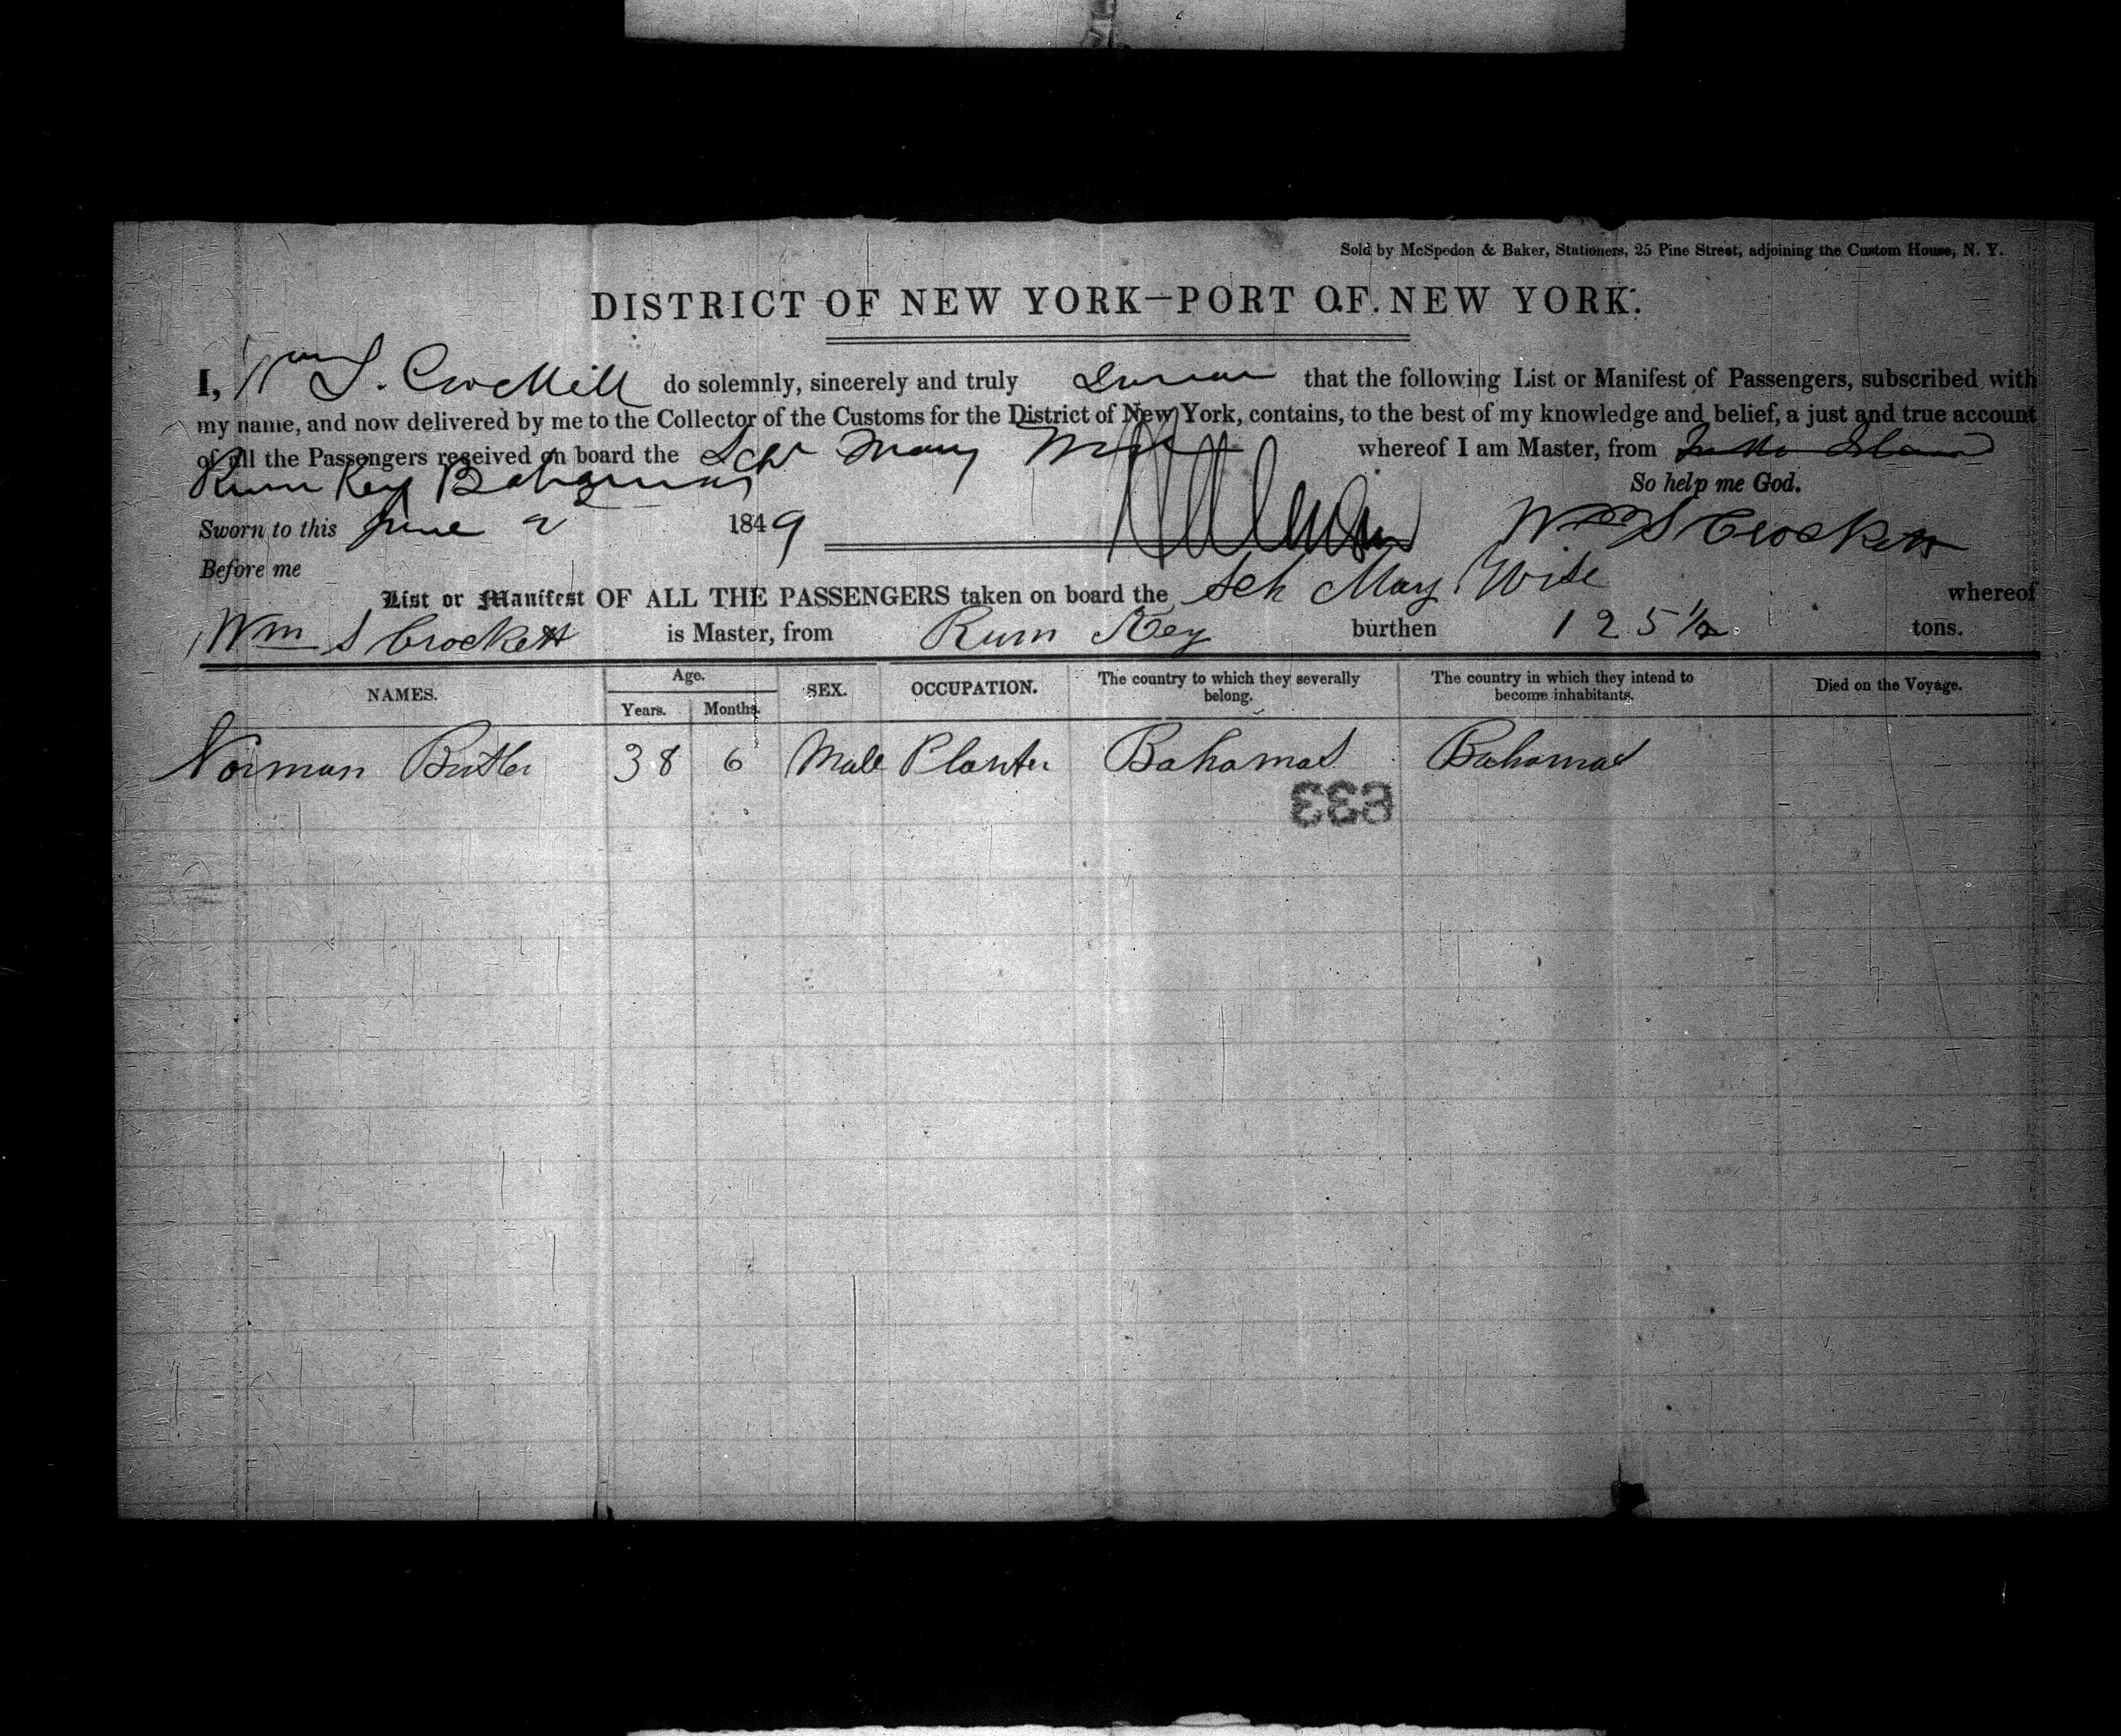 Sold by McSpedon & Baker, Stationers, 25 Pine Street, adjoining the Custom House, N. Y.
DISTRICT OF NEW YORK—PORT OF NEW YORK.
I, Wm S. Crockett do solemnly, sincerely and truly swear that the following List or Manifest of Passengers, subscribed with
my name, and now delivered by me to the Collector of the Customs for the District of New York, contains, to the best of my knowledge and belief, a just and true account
of all the Passengers received on board the Schr Mary Wise whereof I am Master, from
Rum Key Bahamas So help me God.
Sworn to this June 2 1849 Wm S Crockett
Before me
List or Manifest OF ALL THE PASSENGERS taken on board the Sch Mary Wise whereof
Wm S Crockett is Master, from Rum Key burthen 125 1/2 tons.
NAMES. Age. Years. Months. SEX. OCCUPATION. The country to which they severally belong. The country in which they intend to become inhabitants. Died on the Voyage.
Norman Butler 38 6 Male Planter Bahamas Bahamas
633